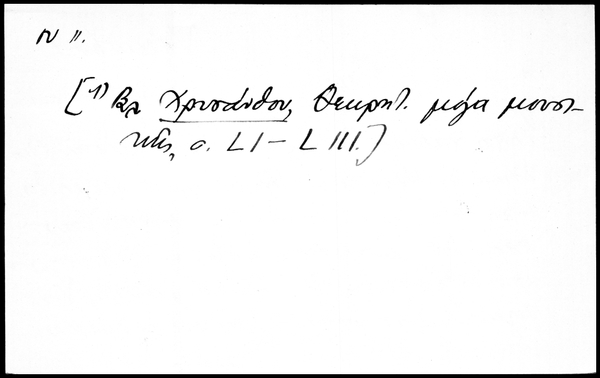 IV 11.
[1) Βλ Χρυσάνθου, Θεωρητ. μέγα μουσι-
κῆς, σ. LI – LIII.]